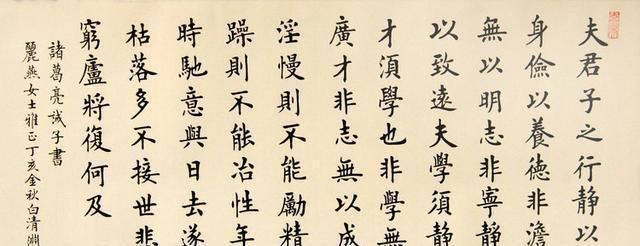 夫君子之行静以
身儉以養德非澹
無以明志非寧静
以致遠夫學須静
才須學也非學無
廣才非志無以成
淫慢則不能勵精
躁則不能冶性年
時馳意與日去遂
枯落多不接世悲
窮廬將復何及
諸葛亮誡子書
麗燕女士雅正丁亥金秋白清